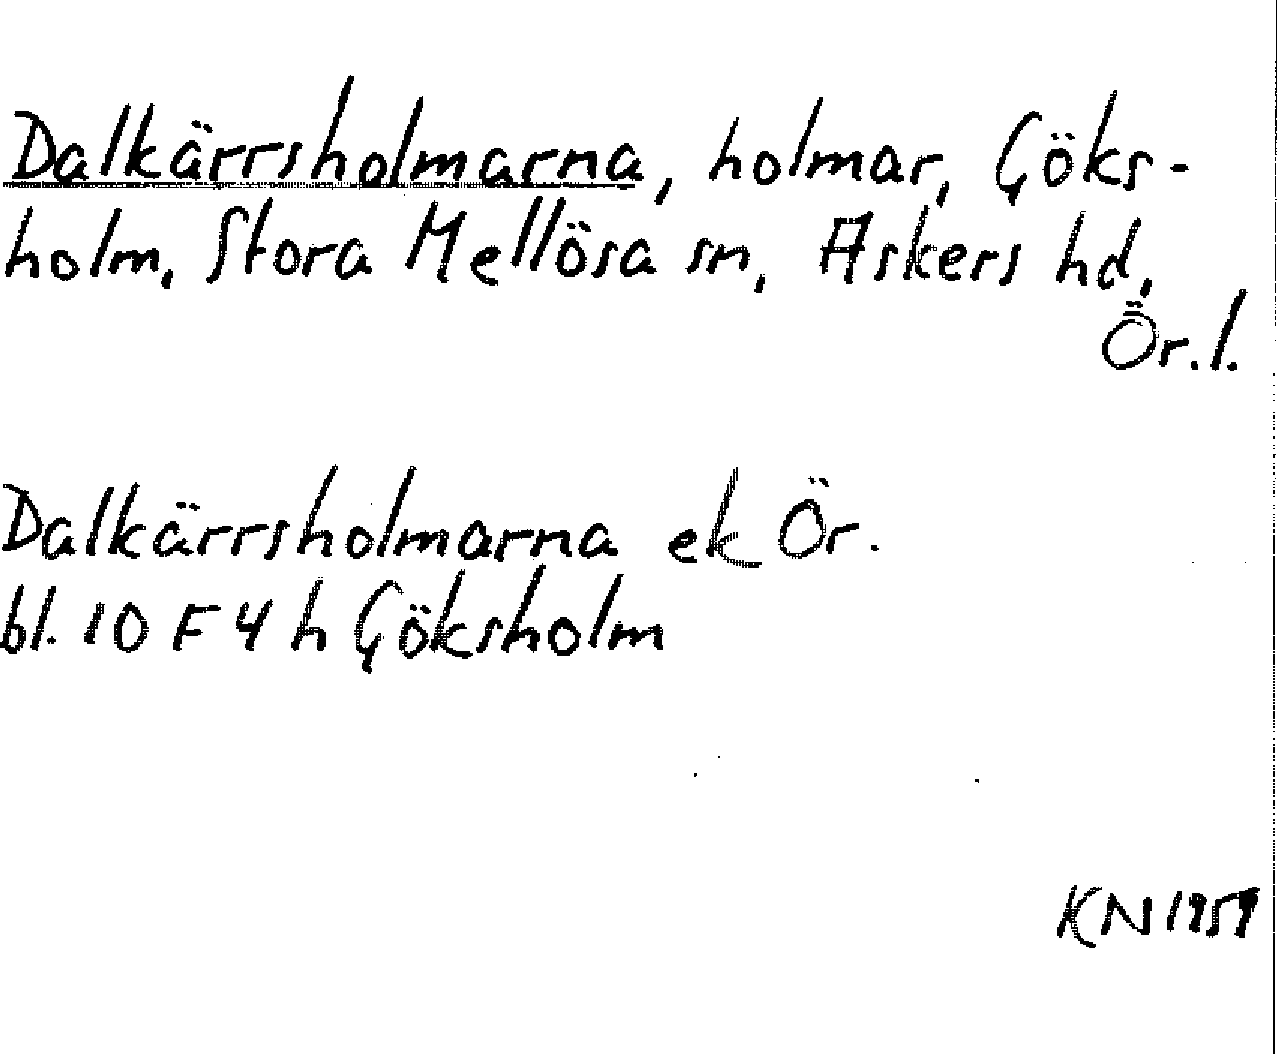 Dalkärrsholmarna, holmar, Göks-
holm, Stora Mellösa sn, Askers hd,
Ör. l.
Dalkärrsholmarna ek Ör.
bl. 10 F 4 h Göksholm
KN 1959